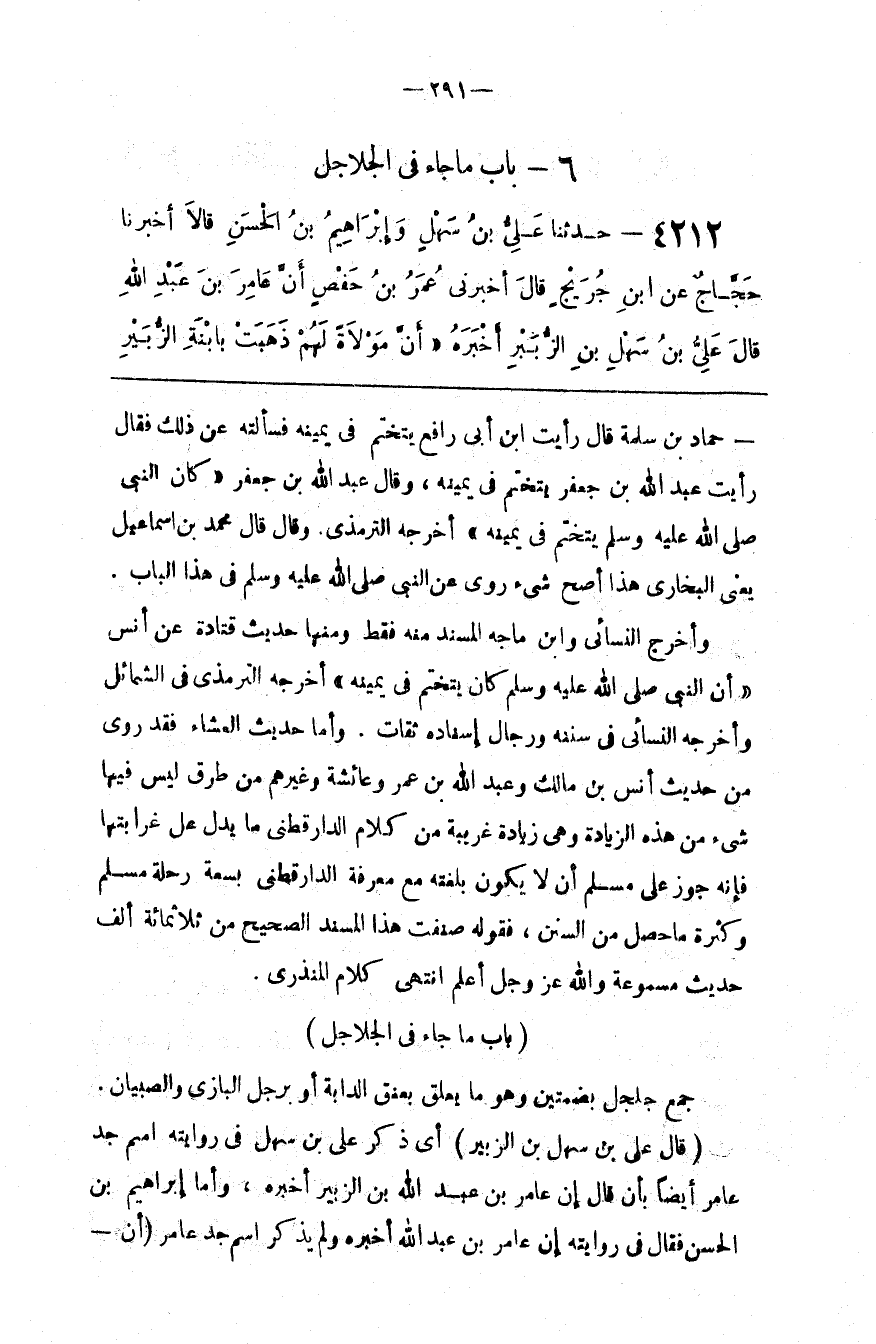 — ٢٩١ —
٦ — باب ماجاء فى الجلاجل
٤٢١٢ — حــدثنا عَـلِىُّ بنُ سَهْلٍ وَإبْرَاهِيمُ بنُ الْحَسَنِ قالاَ أخبرنا
حَجَّـاجٌ عن ابنِ جُرَيْجٍ قالَ أخبرنى عُمَرُ بنُ حَفْصٍ أَنَّ عَامِرَ بنَ عَبْدِ اللهِ
قالَ عَلِىُّ بنُ سَهْلِ بنِ الزُّبَيْرِ أخْبَرَهُ « أَنَّ مَوْلاَةً لَهُمْ ذَهَبَتْ بابْنَةِ الزُّبَيْرِ
— حماد بن سلمة قال رأيت ابن أبى رافع يتختّم فى يمينه فسألته عن ذلك فقال
رأيت عبد الله بن جعفر يتختّم فى يمينه ، وقال عبد الله بن جعفر « كان النبى
صلى الله عليه وسلم يتختّم فى يمينه » أخرجه الترمذى. وقال قال محمد بن اسماعيل
يعنى البخارى هذا أصح شىء روى عن النبى صلى الله عليه وسلم فى هذا الباب .
وأخرج النسائى وابن ماجه المسند منه فقط ومنها حديث قتادة عن أنس
« أن النبى صلى الله عليه وسلم كان يتختم فى يمينه » أخرجه الترمذى فى الشمائل
وأخرجه النسائى فى سننه ورجال إسناده ثقات . وأما حديث العشاء فقد روى
من حديث أنس بن مالك وعبد الله بن عمر وعائشة وغيرهم من طرق ليس فيها
شىء من هذه الزيادة وهى زيادة غريبة من كلام الدارقطنى ما يدل على غرابتها
فإنه جوز على مسلم أن لا يكون بلغته مع معرفة الدارقطنى بسعة رحلة مسـلم
وكثرة ماحصل من السنن ، فقوله صنفت هذا المسند الصحيح من ثلاثمائة ألف
حديث مسموعة والله عز وجل أعلم انتهى كلام المنذرى .
( باب ما جاء فى الجلاجل )
جمع جلجل بضمتين وهو ما يعلق بعنق الدابة أو برجل البازي والصبيان .
( قال على بن سهل بن الزبير ) أى ذكر على بن سهل فى روايته اسم جد
عامر أيضاً بأن قال إن عامر بن عبـد الله بن الزبير أخبره ، وأما إبراهيم بن
الحسن فقال فى روايته إن عامر بن عبد الله أخبره ولم يذكر اسم جد عامر (أن —